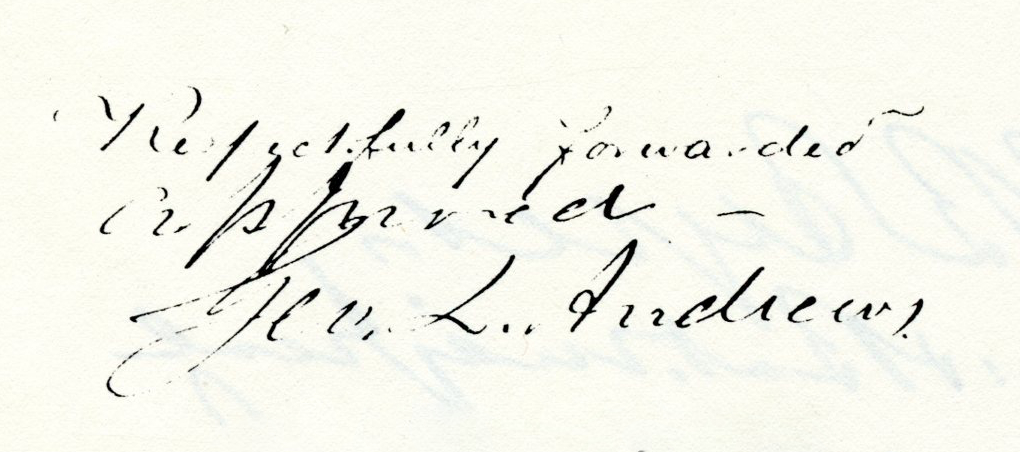 Respectfully forwarded
approved —
Geo. L. Andrews.